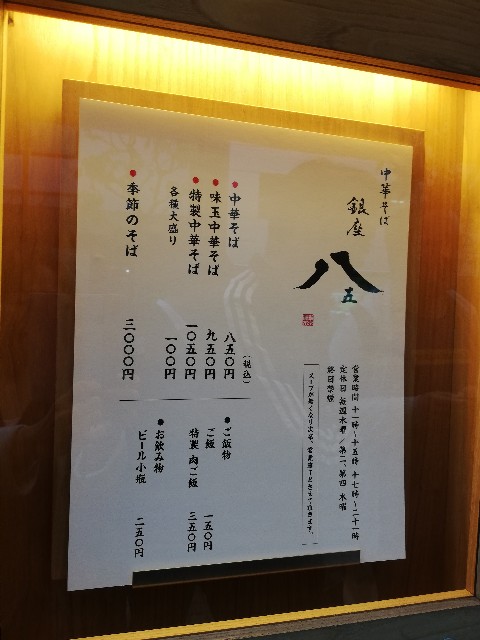 中華そば
銀座
八五
営業時間 十一時～十五時 十七時～二十一時
定休日 毎週木曜／第二、第四 水曜
終日禁煙
スープが無くなり次第、営業終了とさせて頂きます。
(税込)
●中華そば 八五〇円
●味玉中華そば 九五〇円
●特製中華そば 一〇五〇円
各種大盛り 一〇〇円
●季節のそば 三〇〇〇円
●ご飯物
ご飯 一五〇円
特製 肉ご飯 三五〇円
●お飲み物
ビール小瓶 二五〇円